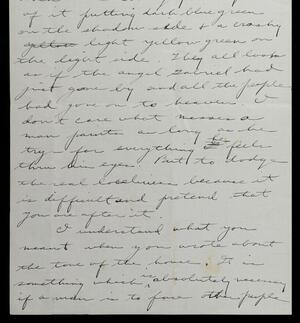 of it putting dark blue green
on the shadow side & a crashy
yellow light yellow green on
the light side. They all look
as if the angel Gabriel had
just gone by and all the people
had gone on to heaven. I
don't care what messes a
man paints as long as he
trys for everything he feels
thru his eyes. But to dodge
the real loveliness because it
is difficult and pretend that
you are after it.
I understand what you
meant when you wrote about
the tone of the house. It is
something which is absolutely necessary
if a man is to face other people